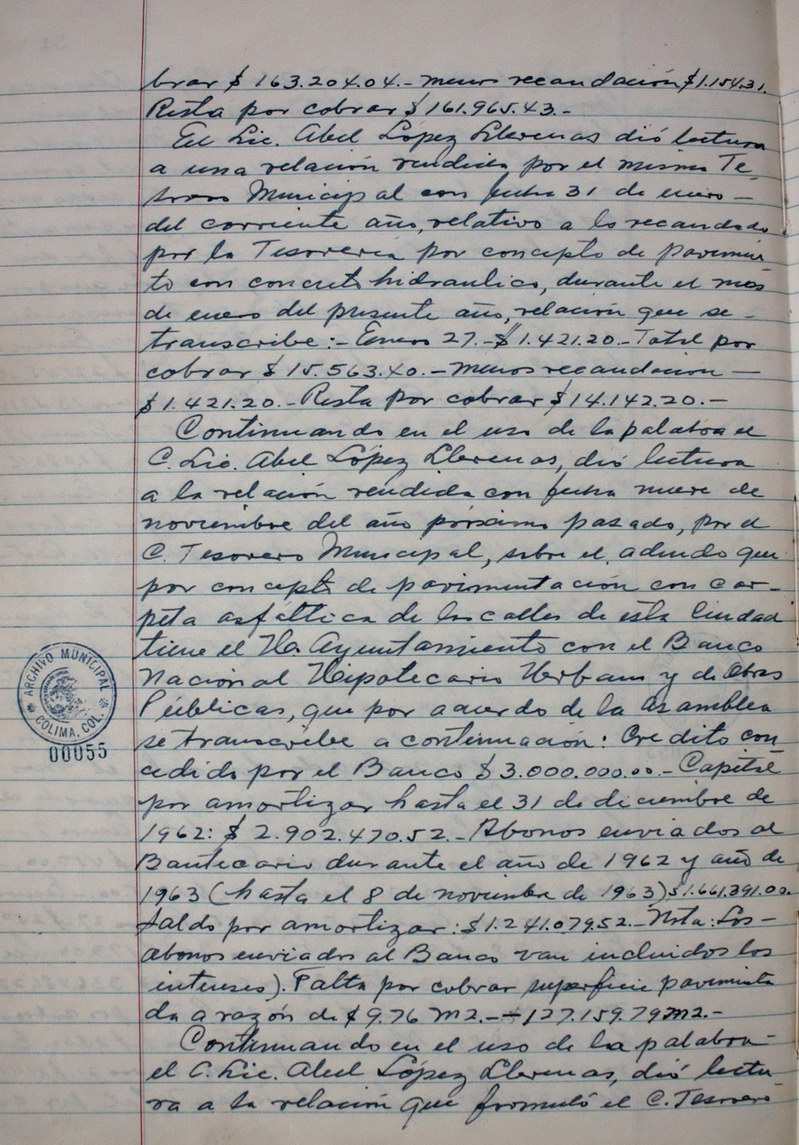 brar $ 163.204.04.- menos recaudación $1.154.31.
Resta por cobrar $ 161.965.43.-
El Lic. Abel Lopez Llerenas dió lectura
a una relación rendida por el mismo Te-
sorero Municipal con fecha 31 de enero-
del corriente año, relativo a lo recaudado
por la Tesorería por concepto de pavimen
to con concreto hidraulico, durante el mes
de enero del presente año, relación que se-
transcribe:- Enero 27.-$1.421.20.-Total por
cobrar $ 15.563.40.- menos recaudacion-
$1.421.20.- Resta por cobrar $14.142.20.-
Continuando en el uso de la palabra el
C. Lic. Abel López Llerenas, dió lectura
a la relación rendida con fecha nueve de
noviembre del año próximo pasado, por el
C. Tesorero Municipal, sobre el adeudo que
por concepto de pavimentación con car-
peta asfáltica de las calles de esta Ciudad
tiene el H. Ayuntamiento con el Banco
Nacional Hipotecario Urbano y de Obras
Públicas, que por acuerdo de la asamblea
se transcribe a continuación: Credito con
cedido por el Banco $ 3.000.000.00.- Capital
por amortizar hasta el 31 de diciembre de
1962: $ 2.902.470.52.- Abonos enviados al
Bantecario durante el año de 1962 y año de
1963 (hasta el 8 de noviembre de 1963) $1.661.391.00.
Saldo por amortizar: $1.241.079.52.- Nota: Los-
abonos enviados al Banco van incluidos los
intereses). Falta por cobrar superficie pavimenta
da a razón de $ 9.76 M2.- 127.159.79 M2.-
Continuando en el uso de la palabra-
el C. Lic. Abel López Llerenas, dió lectu
ra a la relación que formuló el C. Tesorero
ARCHIVO MUNICIPAL
COLIMA, COL.
00055